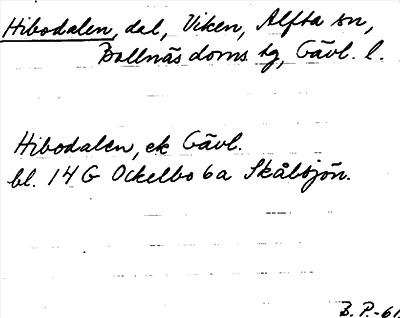 Hibodalen, dal, Viken, Alfta sn,
Bollnäs doms tg, Gävl. l.
Hibodalen, ek Gävl.
bl. 14 G Ockelbo 6a Skålsjön.
B. P.-61